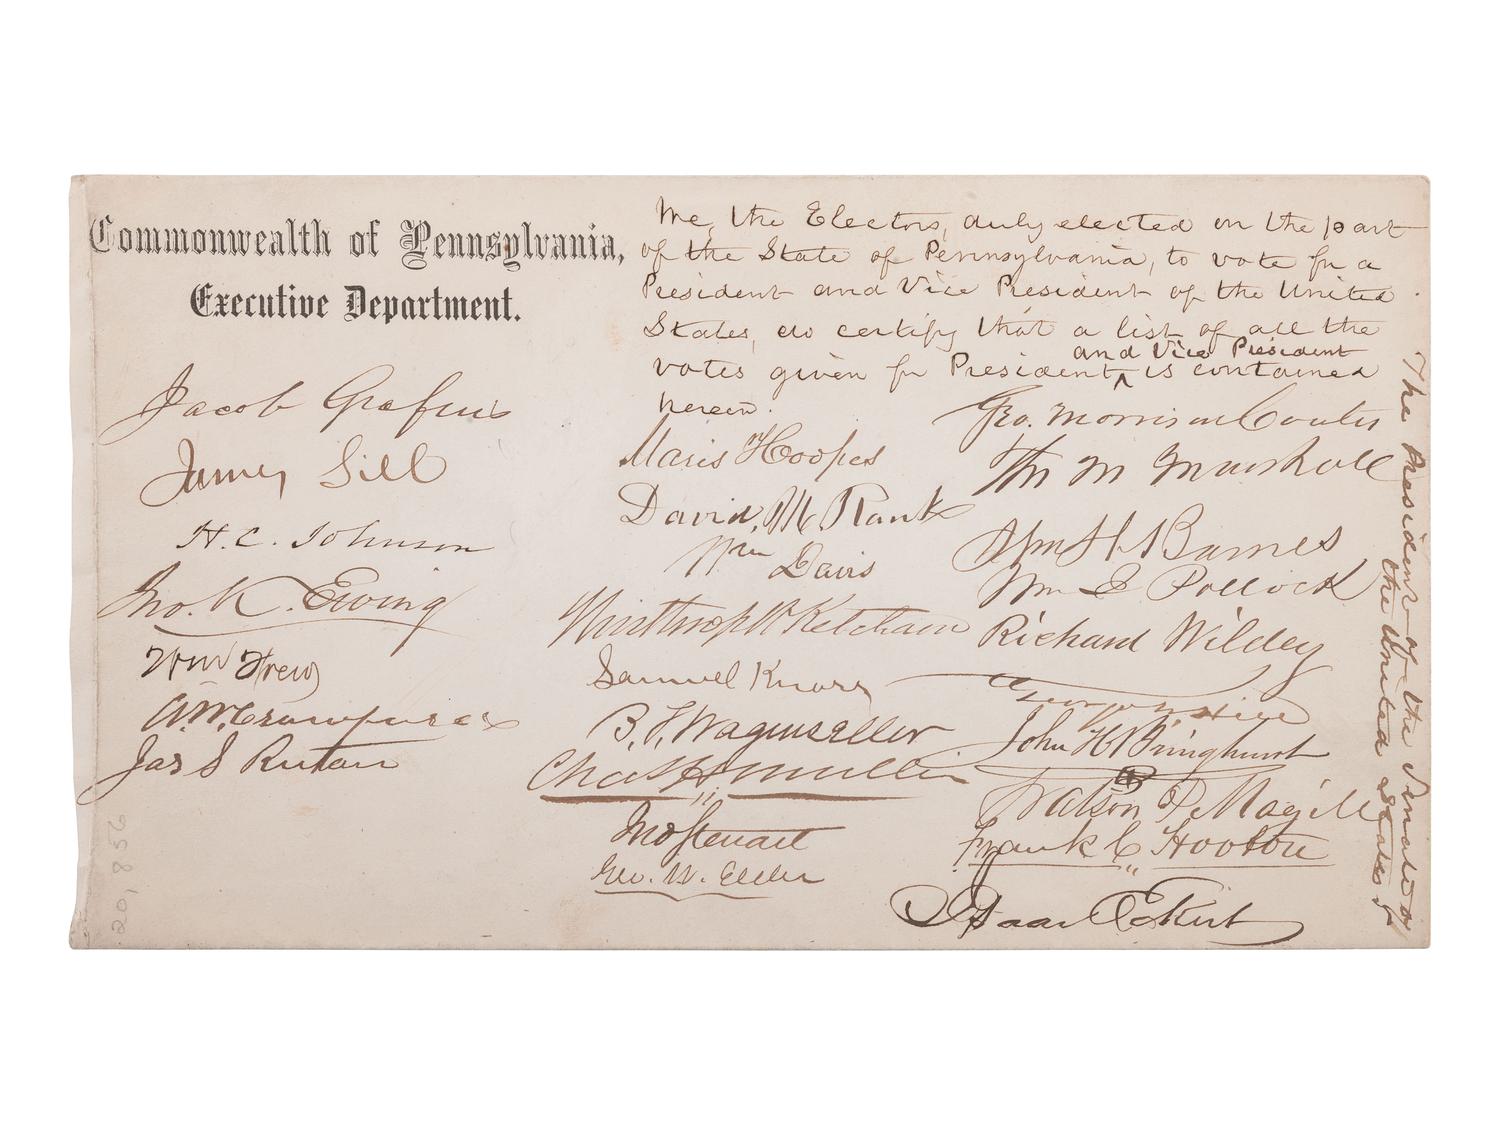 Commonwealth of Pennsylvania,
Executive Department.
We, the Electors, duly elected on the part
of the State of Pennsylvania, to vote for a
President and Vice President of the United
States, do certify that a list of all the
and Vice President
votes given for President ^ is contained
herein.
Jacob Grafius
James Sill
H. C. Johnson
Jno. K. Ewing
Wm Frew
A. W. Crawford
Jas S Rutan
Maris Hoopes
David M Rank
Wm Davis
Winthrop W Ketcham
Samuel Knorr
B. F. Wagenseller
Chas H Mullin
Jno Stewart
Geo. W. Elder
Geo. Morrison Coates
Th M Marshall
Wm H. Barnes
Wm Pollock
Richard Wildey
John H Bringhurst
Watson P Magill
Frank C Hooton
Isaac Eckert
The President of the Senate of
the United States of
20,856